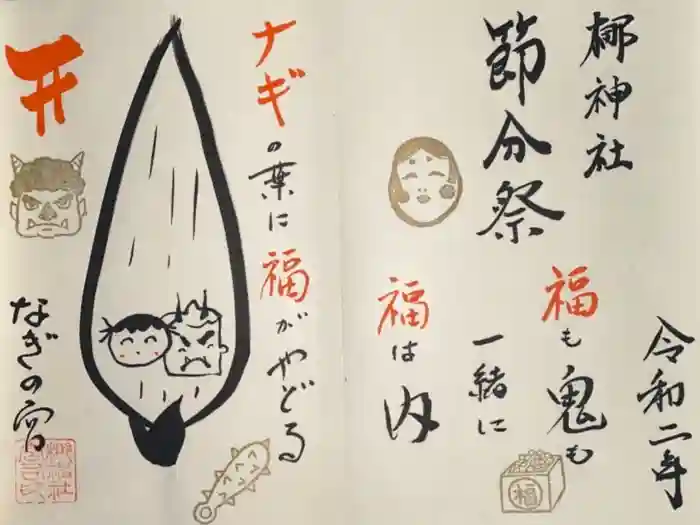 梛神社
節分祭
福も鬼も
一緒に
福は内
令和二年
ナギの葉に福がやどる
なぎの宮
福